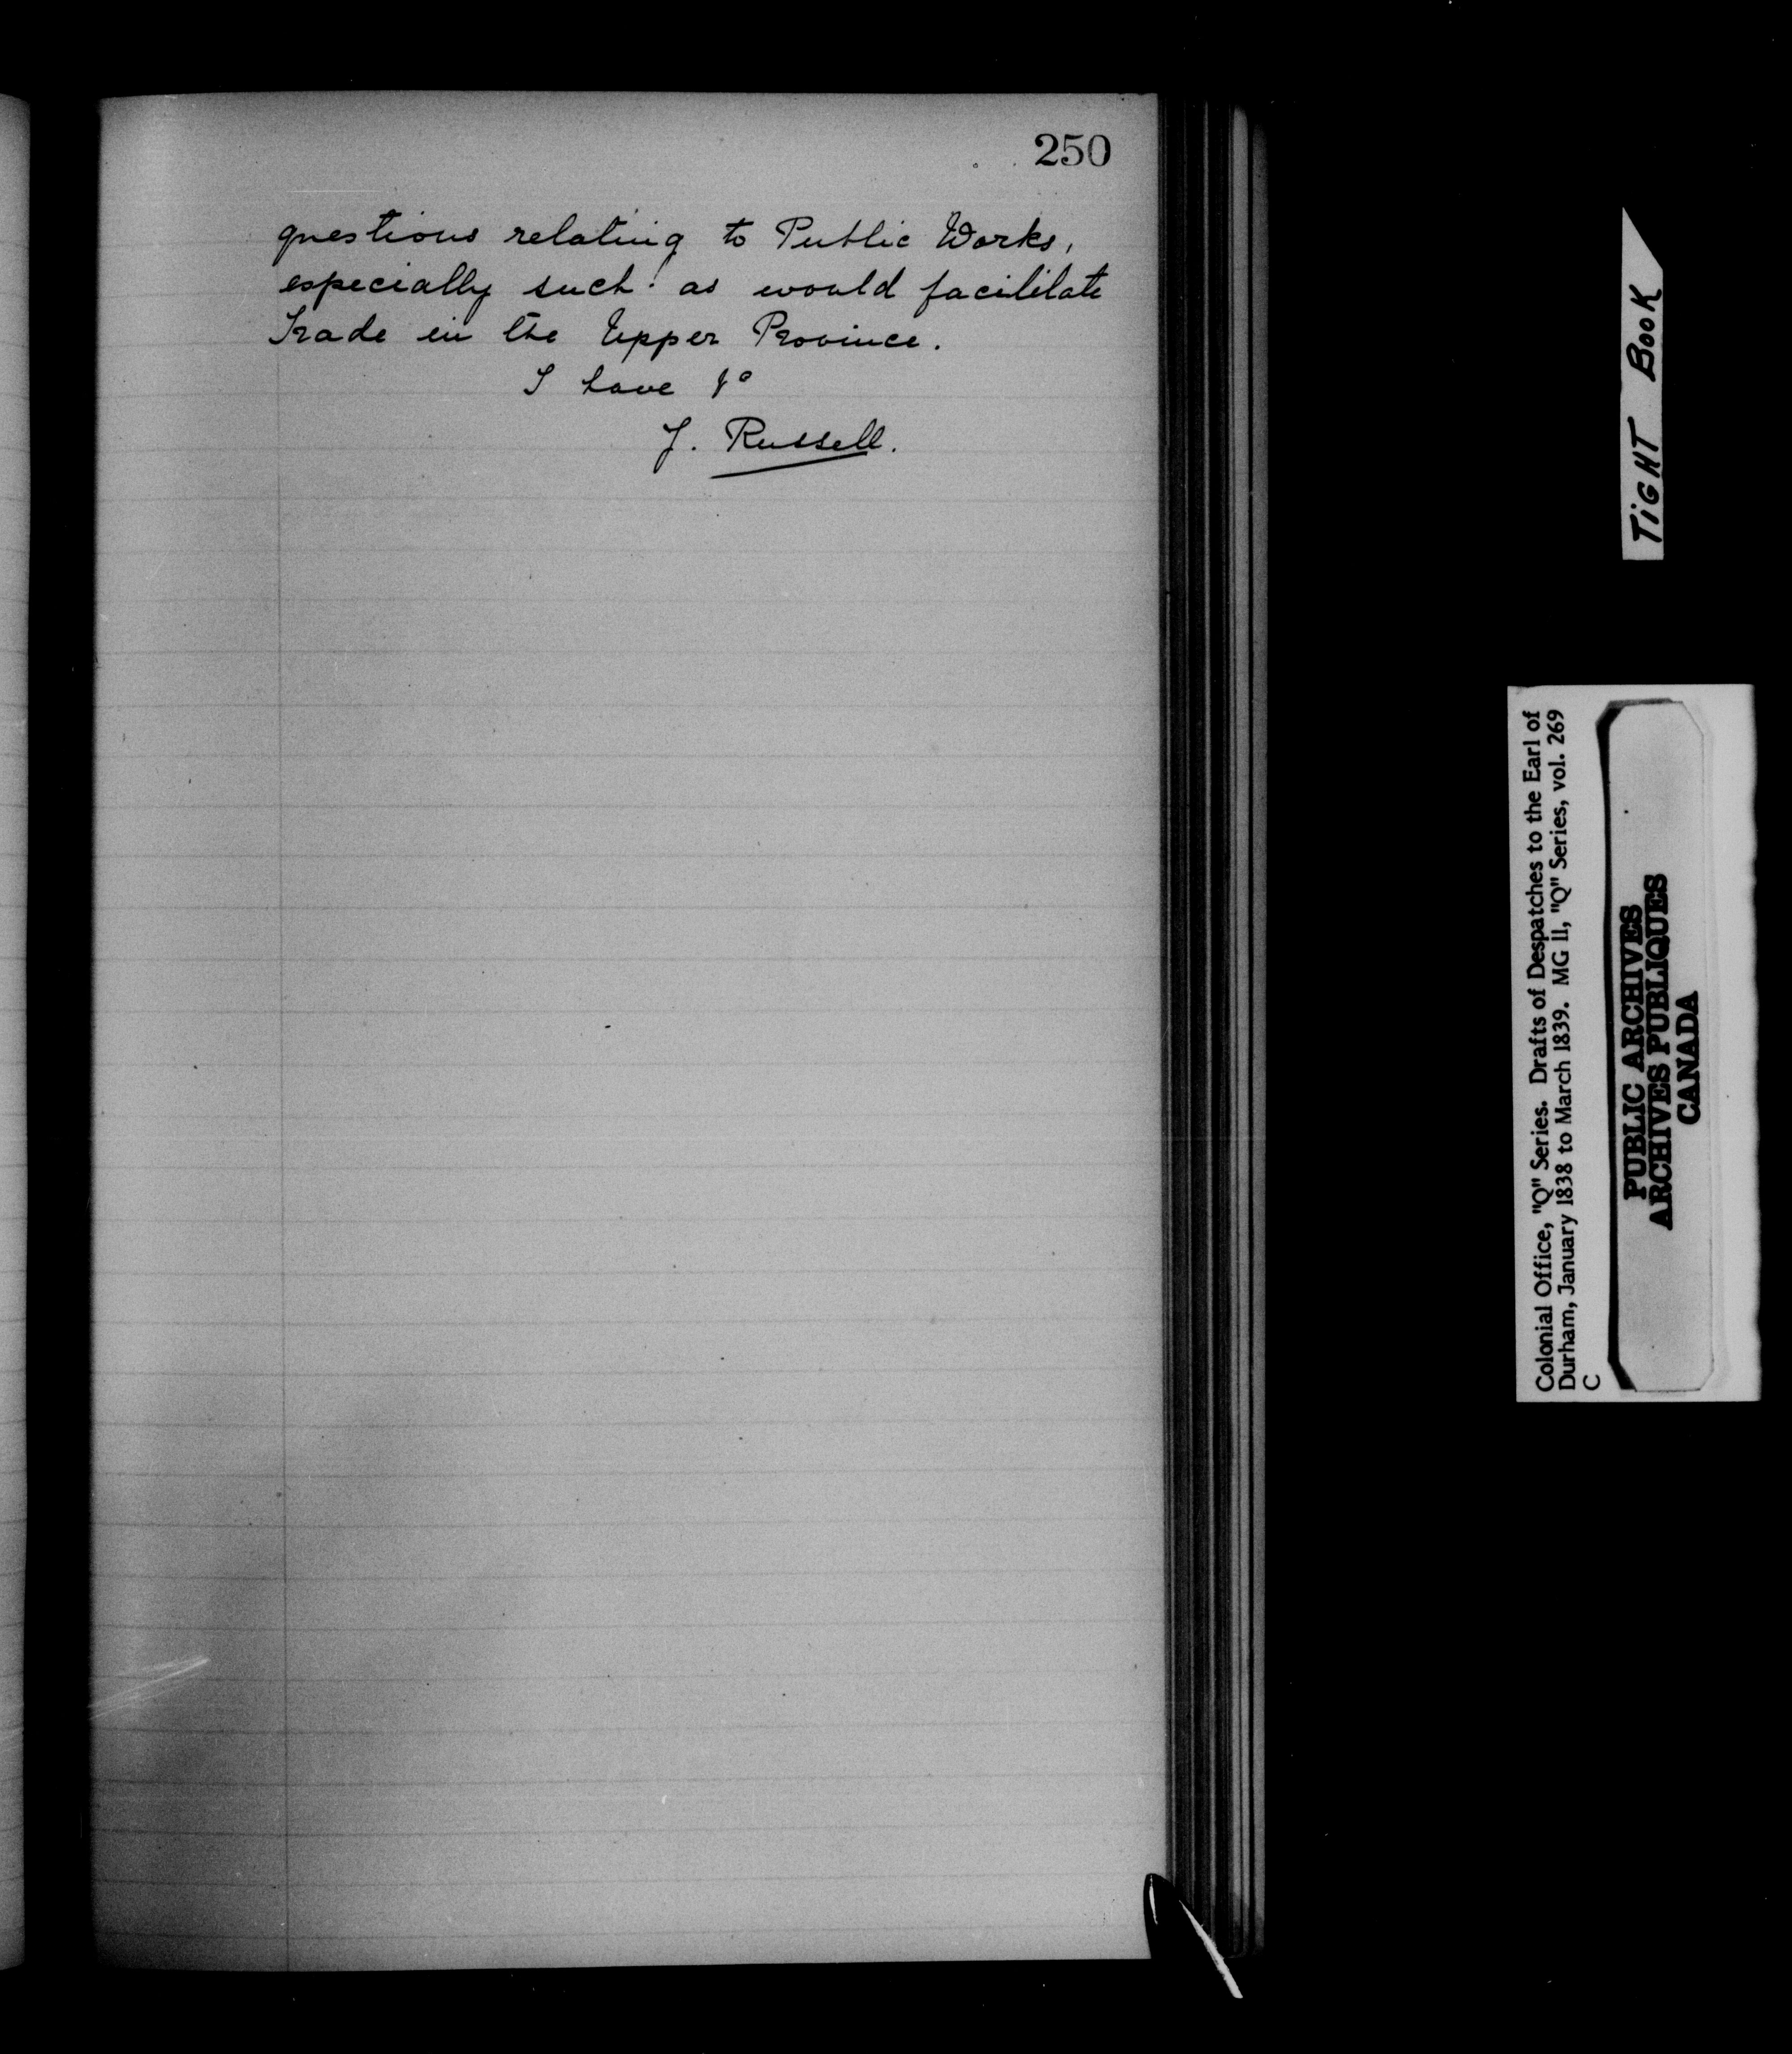 250
questions relating to Public Works,
especially such as would facilitate
Trade in the Upper Province.
I have &c
J. Russell.
TIGHT BOOK
Colonial Office, "Q" Series. Drafts of Despatches to the Earl of
Durham, January 1838 to March 1839. MG 11, "Q" Series, vol. 269
C
PUBLIC ARCHIVES
ARCHIVES PUBLIQUES
CANADA